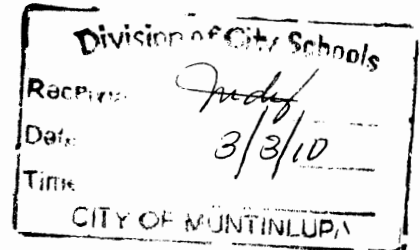 Division of City Schools
Received
Date 3/3/10
Time
CITY OF MUNTINLUPA